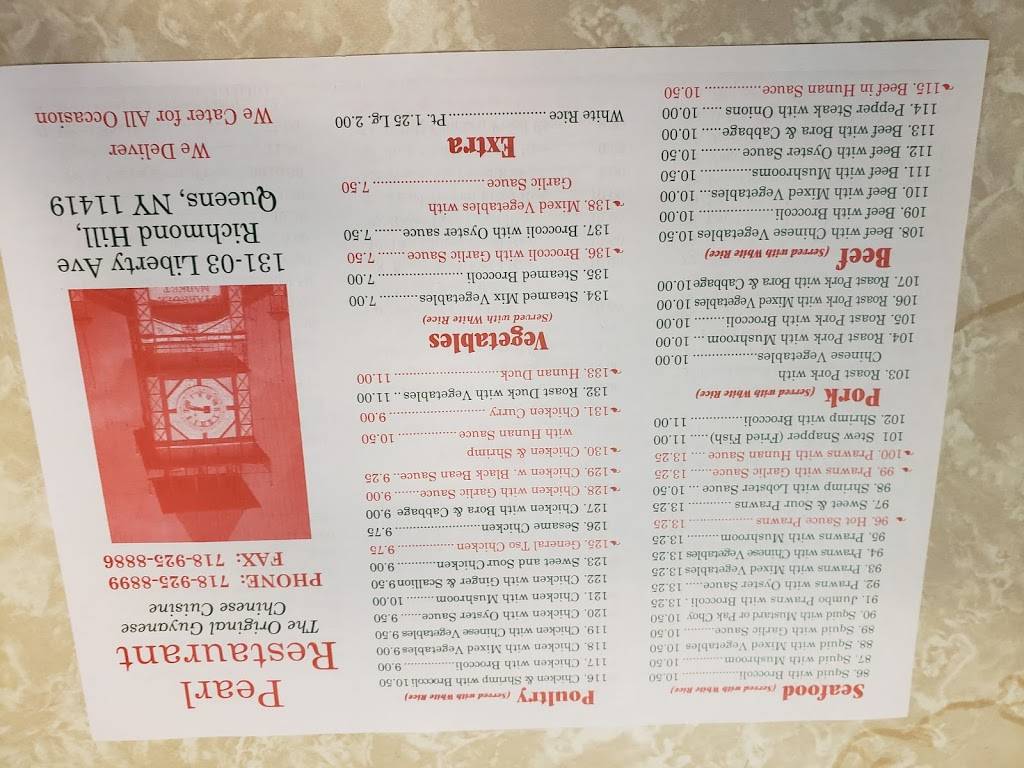 Seafood (Served with White Rice)
86. Squid with Broccoli................ 10.50
87. Squid with Mushroom .......... 10.50
88. Squid with Mixed Vegetables 10.50
89. Squid with Garlic Sauce........ 10.50
90. Squid with Mustard or Pak Choy 10.50
91. Jumbo Prawns with Broccoli . 13.25
92. Prawns with Oyster Sauce..... 13.25
93. Prawns with Mixed Vegetables 13.25
94. Prawns with Chinese Vegetables 13.25
95. Prawns with Mushroom......... 13.25
96. Hot Sauce Prawns ................ 13.25
97. Sweet & Sour Prawns .......... 13.25
98. Shrimp with Lobster Sauce ... 10.50
99. Prawns with Garlic Sauce...... 13.25
100. Prawns with Hunan Sauce .... 13.25
101. Stew Snapper (Fried Fish)..... 11.00
102. Shrimp with Broccoli.............. 11.00
Pork (Served with White Rice)
103. Roast Pork with
Chinese Vegetables................. 10.00
104. Roast Pork with Mushroom ... 10.00
105. Roast Pork with Broccoli........ 10.00
106. Roast Pork with Mixed Vegetables 10.00
107. Roast Pork with Bora & Cabbage 10.00
Beef (Served with White Rice)
108. Beef with Chinese Vegetables 10.50
109. Beef with Broccoli.................. 10.00
110. Beef with Mixed Vegetables... 10.00
111. Beef with Mushrooms............ 10.50
112. Beef with Oyster Sauce ......... 10.50
113. Beef with Bora & Cabbage..... 10.00
114. Pepper Steak with Onions ..... 10.00
115. Beef in Hunan Sauce.............. 10.50
Poultry (Served with White Rice)
116. Chicken & Shrimp with Broccoli 10.50
117. Chicken with Broccoli............. 9.00
118. Chicken with Mixed Vegetables 9.00
119. Chicken with Chinese Vegetables 9.50
120. Chicken with Oyster Sauce...... 9.50
121. Chicken with Mushroom ......... 10.00
122. Chicken with Ginger & Scallion 9.50
123. Sweet and Sour Chicken.......... 9.00
125. General Tso Chicken .............. 9.75
126. Sesame Chicken..................... 9.75
127. Chicken with Bora & Cabbage 9.00
128. Chicken with Garlic Sauce....... 9.00
129. Chicken w. Black Bean Sauce.. 9.25
130. Chicken & Shrimp
with Hunan Sauce ................ 10.50
131. Chicken Curry ........................ 9.00
132. Roast Duck with Vegetables .. 11.00
133. Hunan Duck........................... 11.00
Vegetables
(Served with White Rice)
134. Steamed Mix Vegetables.......... 7.00
135. Steamed Broccoli .................... 7.00
136. Broccoli with Garlic Sauce ...... 7.50
137. Broccoli with Oyster sauce....... 7.50
138. Mixed Vegetables with
Garlic Sauce ............................ 7.50
Extra
White Rice ........................ Pt. 1.25 Lg. 2.00
Pearl
Restaurant
The Original Guyanese
Chinese Cuisine
PHONE: 718-925-8899
FAX: 718-925-8886
131-03 Liberty Ave
Richmond Hill,
Queens, NY 11419
We Deliver
We Cater for All Occasion